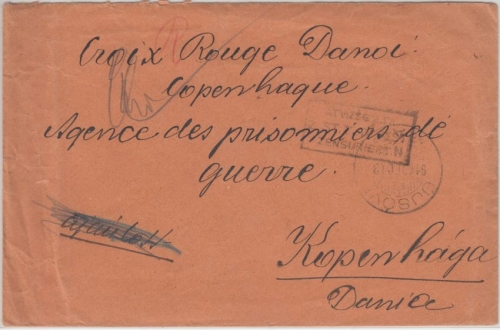 Croix Rouge Danoi.
Copenhague.
Agence des prisonniers de
guerre.
ajánlott
Kopenhága
Dania